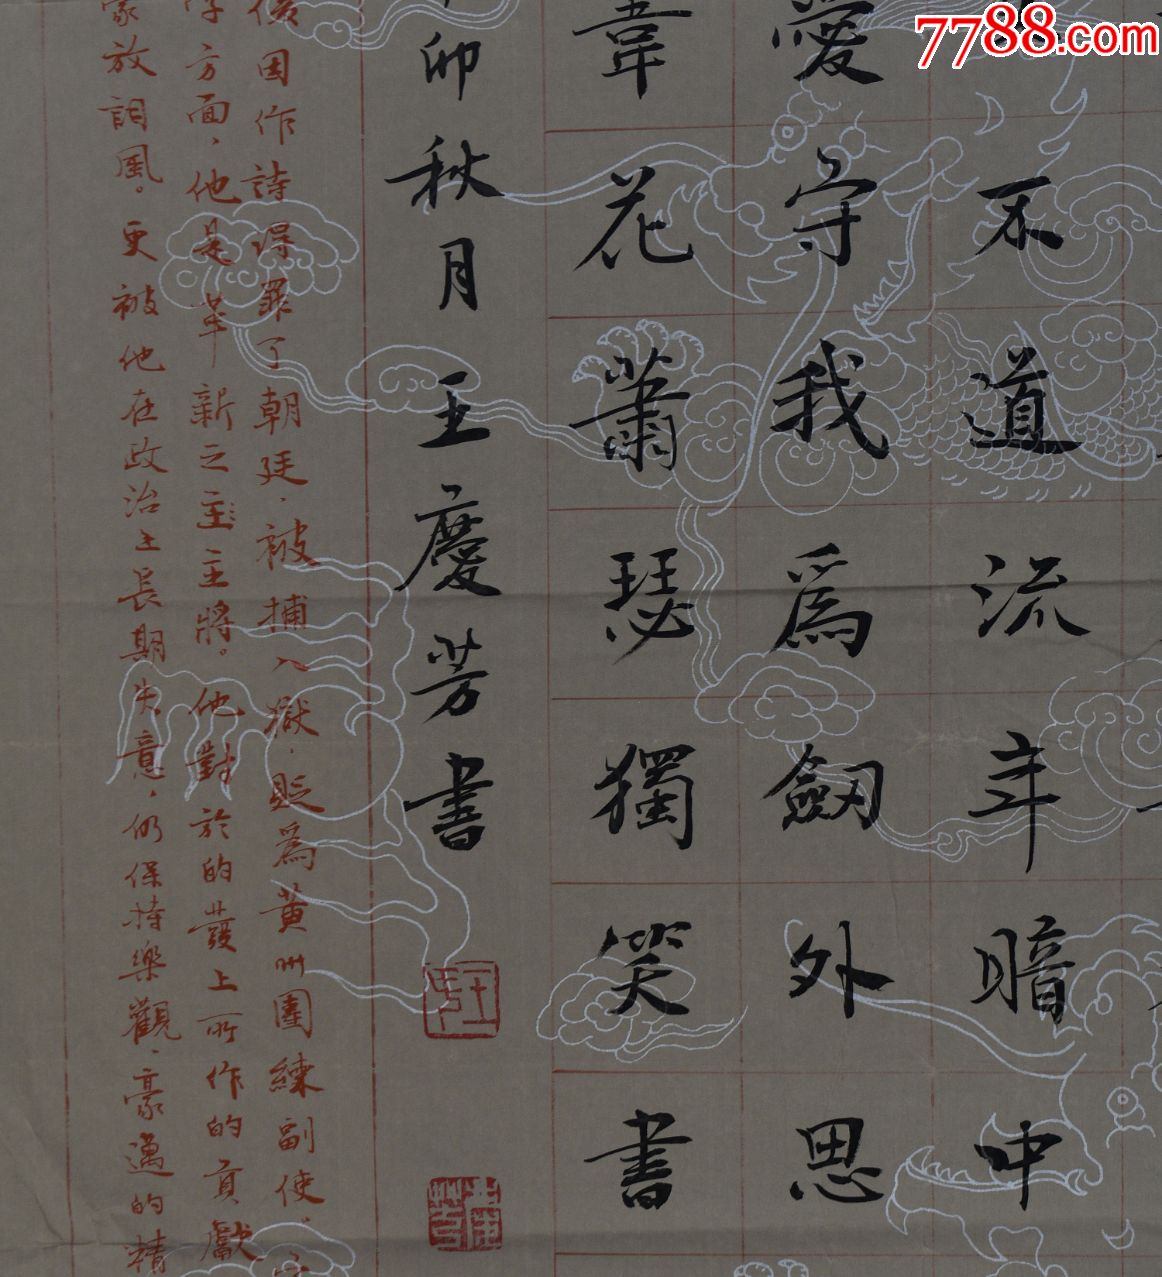 7788.com
不道流年暗中
愛守我為劍外思
韋花蕭瑟獨笑書
卯秋月王慶芳書
後因作詩得罪了朝廷，被捕入獄，貶為黃州團練副使。
字方面，他是革新之主主將。他對於的發上所作的貢獻
豪放詞風。更被他在政治上長期失意，仍保持樂觀、豪邁的精